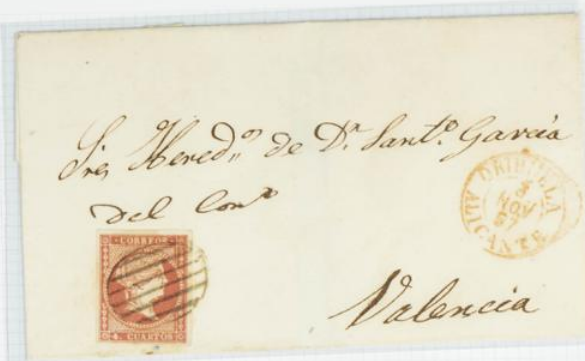 Sres Hered.os de D.n Sant.o García
del Com.o
ORIHUELA
3
NOV
57
ALICANTE
CORREOS
4 CUARTOS
Valencia